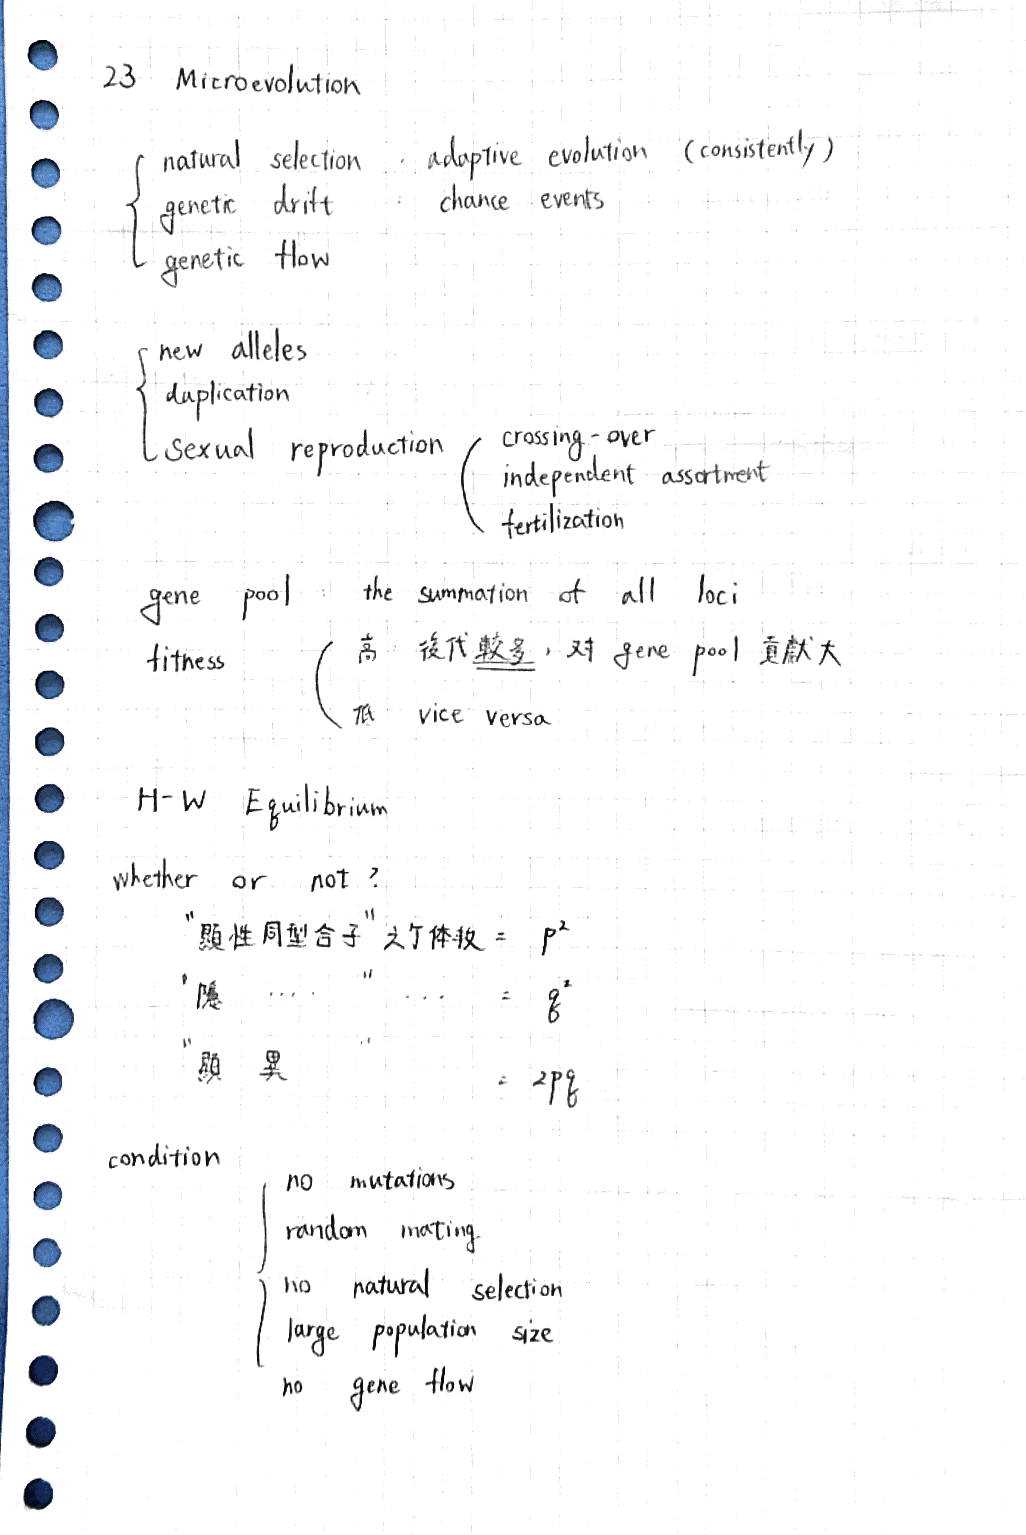 23 Microevolution
natural selection : adaptive evolution (consistently)
genetic drift : chance events
genetic flow
new alleles
duplication
sexual reproduction
crossing-over
independent assortment
fertilization
gene pool : the summation of all loci
fitness
高 後代較多, 对 gene pool 貢献大
低 vice versa
H-W Equilibrium
whether or not ?
"顯性同型合子" 之个体数 = p²
"隱 .... " ... = q²
"顯 異 " = 2pq
condition
no mutations
random mating
no natural selection
large population size
no gene flow